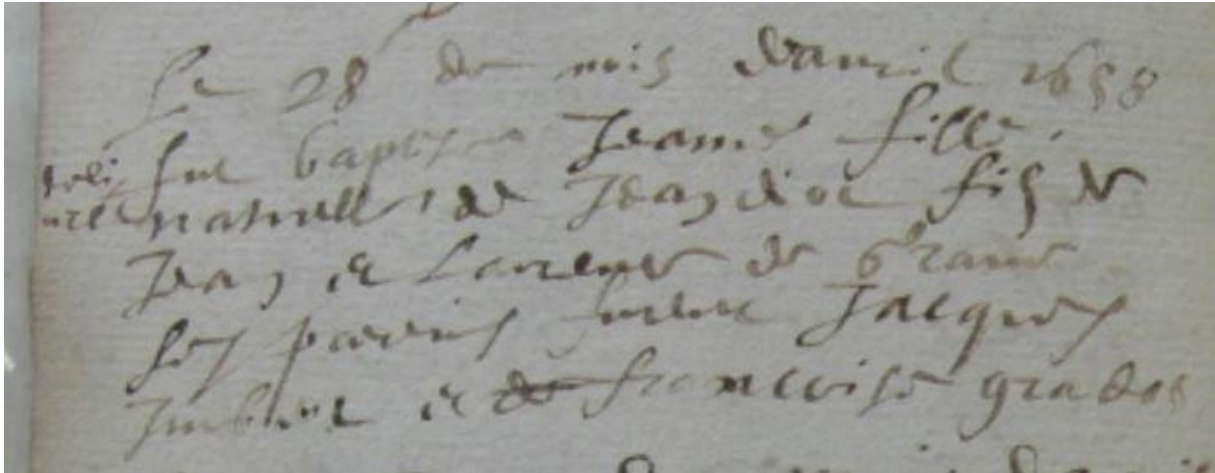 Le 28 de mois d'avril 1658
fut baptise Jeanne fille
naturelle de Jean fils de
Jean et Laurence de
ses parins furent Jacques
Imbert et de francoise grados